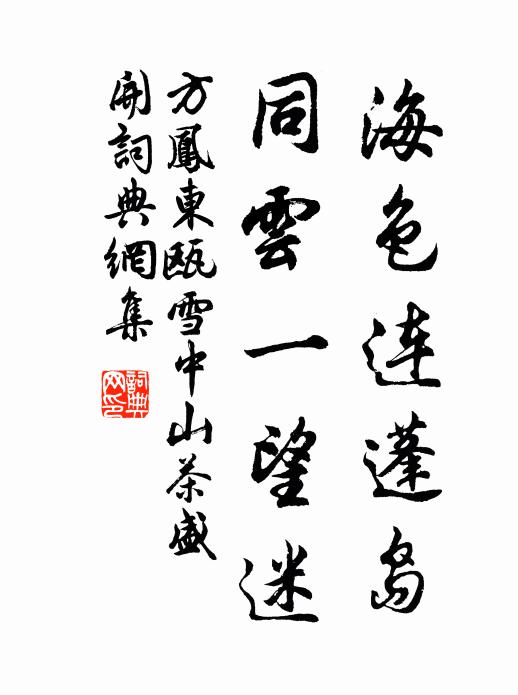 海色连蓬岛
同雲一望迷
方鳳東甌雪中山茶盛
開詞典網集
詞典
网印